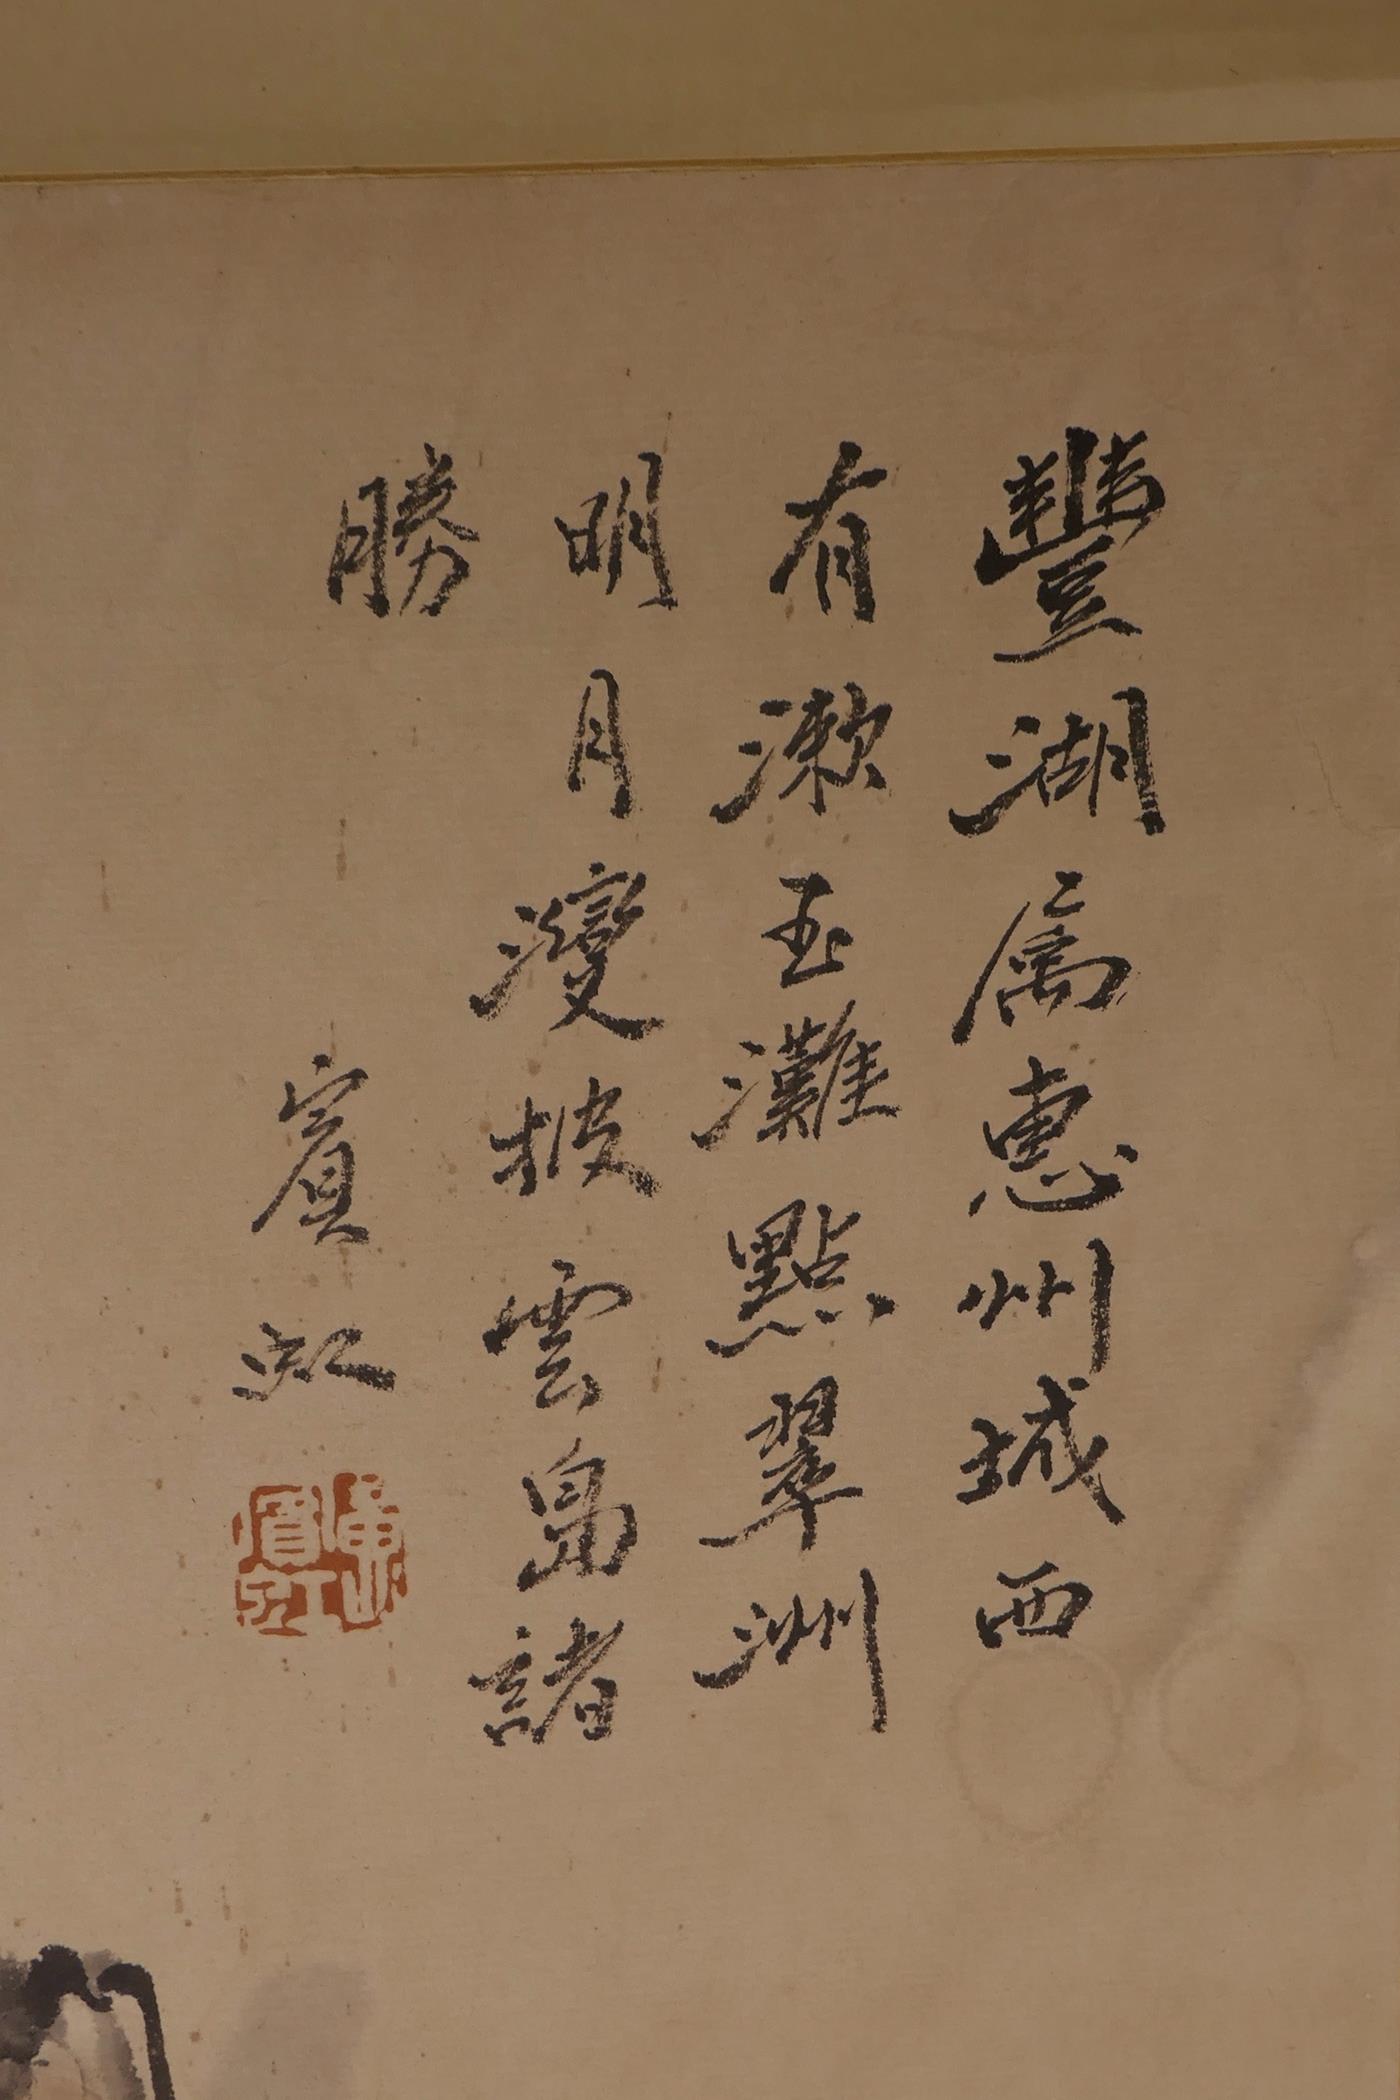 豐湖屬惠州城西
有漱玉灘點翠洲
明月灣披雲島諸
勝
賓虹
黃賓虹